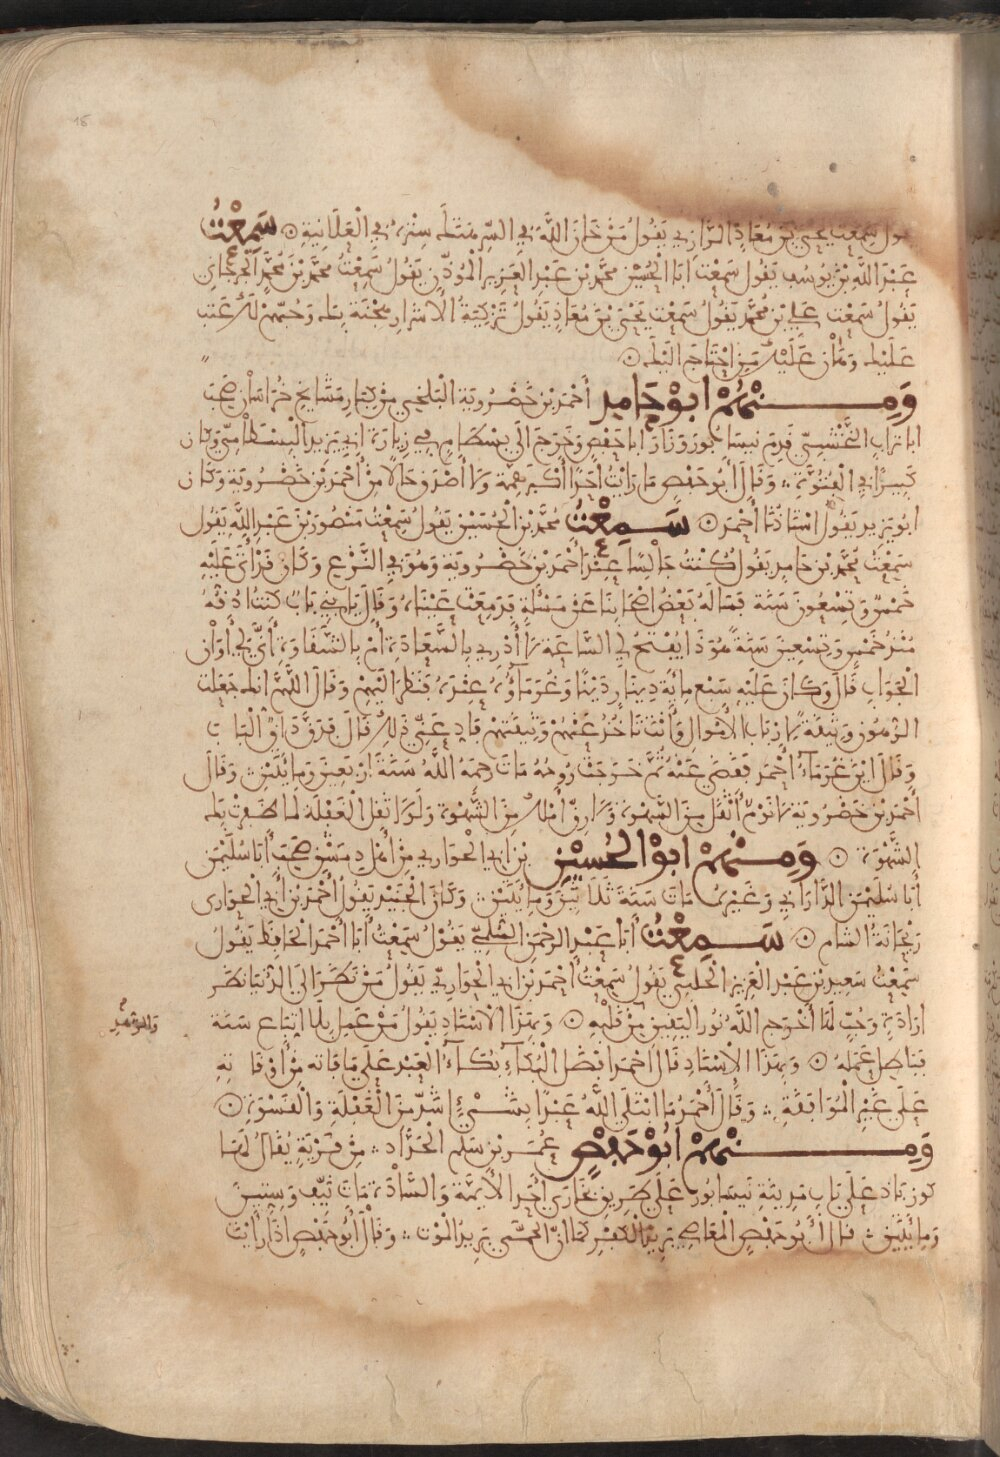 يقول سمعت يحيى بن معاذ الرازي يقول من خان الله في السر هتك الله ستره في العلانية ۞ سمعت
عبد الله بن يوسف يقول سمعت ابا الحسين محمد بن عبد العزيز المؤذن يقول سمعت محمد بن محمد الجرجاني
يقول سمعت علي بن محمد يقول سمعت يحيى بن معاذ يقول تزكية الاشرار هجنة بك وحبهم لك عيب
عليك وهان عليك من احتاج اليك ۞
ومنهم ابو حامد أحمد بن خضرويه البلخي من كبار مشايخ خراسان صحب
ابا تراب النخشبي قدم نيسابور وزار ابا حفص وخرج الى بسطام في زيارة ابي يزيد البسطامي وكان
كبيرا في الفتوة ؞ وقال أبو حفص ما رايت احدا أكبر همة ولا اصدق حالا من أحمد بن خضرويه وكان
ابو يزيد يقول استاذنا أحمد ۞ سمعت محمد بن الحسين يقول سمعت منصور بن عبد الله يقول
سمعت محمد بن حامد يقول كنت جالسا عند أحمد بن خضرويه وهو في النزع وكان قد أتى عليه
خمس وتسعون سنة فساله بعض اصحابنا عن مسئلة فدمعت عيناه وقال يا بني باب كنت ادقه
منذ خمس وتسعين سنة هو ذا يفتح لي الساعة لا أدري بالسعادة أم بالشقاوة أنى لي أوان
الجواب قال وكان عليه سبع مائة دينار دينا وغرماؤه عنده فنظر اليهم وقال اللهم انك جعلت
الرهون وثيقة لارباب الاموال وأنت تاخذ عنهم وثيقتهم فاد عني ذلك قال فدق داق الباب
وقال اين غرماء أحمد فقضى عنه ثم خرجت روحه مات رحمه الله سنة اربعين ومايتين ؞ وقال
أحمد بن خضرويه لا نوم أثقل من الغفلة ولا رق أملك من الشهوة ولولا ثقل الغفلة لما ظفرت بك
الشهوة ۞ ومنهم ابو الحسين بن ابي الحواري من أهل دمشق صحب أبا سليمن
أبا سليمن الداراني وغيره مات سنة ثلاثين ومايتين ؞ وكان الجنيد يقول أحمد بن ابي الحواري
ريحانة الشام ۞ سمعت أبا عبد الرحمن السلمي يقول سمعت أبا أحمد الحافظ يقول
سمعت سعيد بن عبد العزيز الحلبي يقول سمعت أحمد بن ابي الحواري يقول من نظر الى الدنيا نظر
ارادة وحب لها أخرج الله نور اليقين من قلبه ۞ وبهذا الاستاد يقول من عمل بلا اتباع سنة
والزهد
فباطل عمله ۞ وبهذا الاستاد قال أحمد افضل البكاء بكاء العبد على ما فاته من أوقاته
على غير الموافقة ؞ وقال أحمد ما ابتلى الله عبدا بشيء اشد من الغفلة والقسوة ۞
ومنهم ابو حفص عمر بن سلم الحداد ؞ من قرية يقال لها
كورداباذ على باب مدينة نيسابور على طريق بخارى أحد الأيمة والسادة مات نيف وستين
ومايتين ؞ قال أبو حفص المعاصي بريد الكفر كما ان الحمى بريد الموت ؞ وقال أبو حفص اذا رايت